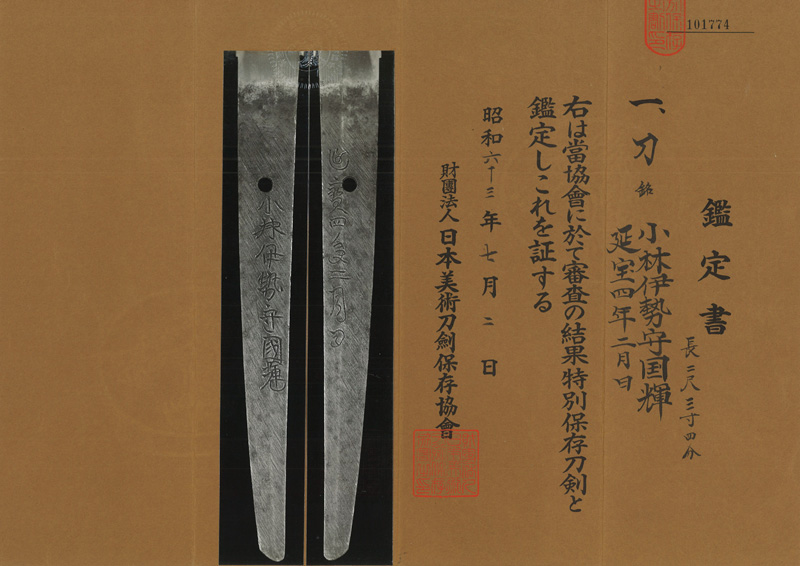 101774
鑑定書
一、刀 銘 小林伊勢守国輝
延宝四年二月日
長二尺三寸四分
右は當協會に於て審査の結果特別保存刀剣と
鑑定しこれを証する
昭和六十三年七月二日
財團法人日本美術刀劍保存協會
小林伊勢守國輝
延寶四年二月日